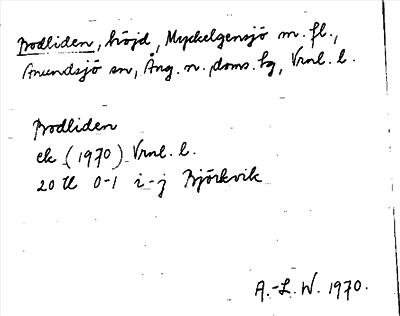 Brodliden, höjd, Myckelgensjö m.fl.,
Anundsjö sn, Ång. n. doms. bg, Vrnl. l.
Brodliden
ek (1970) Vrnl. l.
20 H 0-1 i-j Björkvik
A.-L. W. 1970.